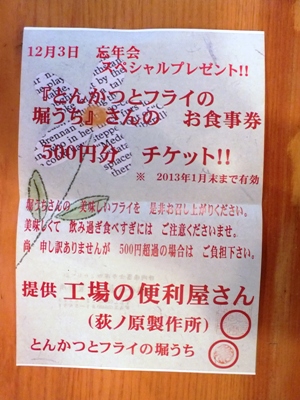 12月3日 忘年会
スペシャルプレゼント!!
『とんかつとフライの
堀うち』さんの お食事券
500円分 チケット!!
※ 2013年1月末まで有効
堀うちさんの 美味しいフライを 是非お召し上がりください。
美味しくて 飲み過ぎ食べすぎには ご注意くださいませ。
尚 申し訳ありませんが 500円超過の場合は ご負担下さい。
提供 工場の便利屋さん
(荻ノ原製作所)
とんかつとフライの堀うち